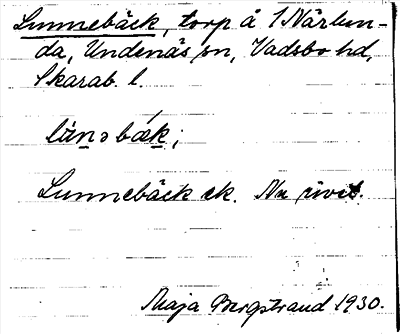 Lunnebäck, torp å 1 Närlun-
da, Undenäs sn, Vadsbo hd,
Skarab. l.
länə bæk;
Lunnebäck ek. Nu rivet.
Maja Bergstrand 1930.